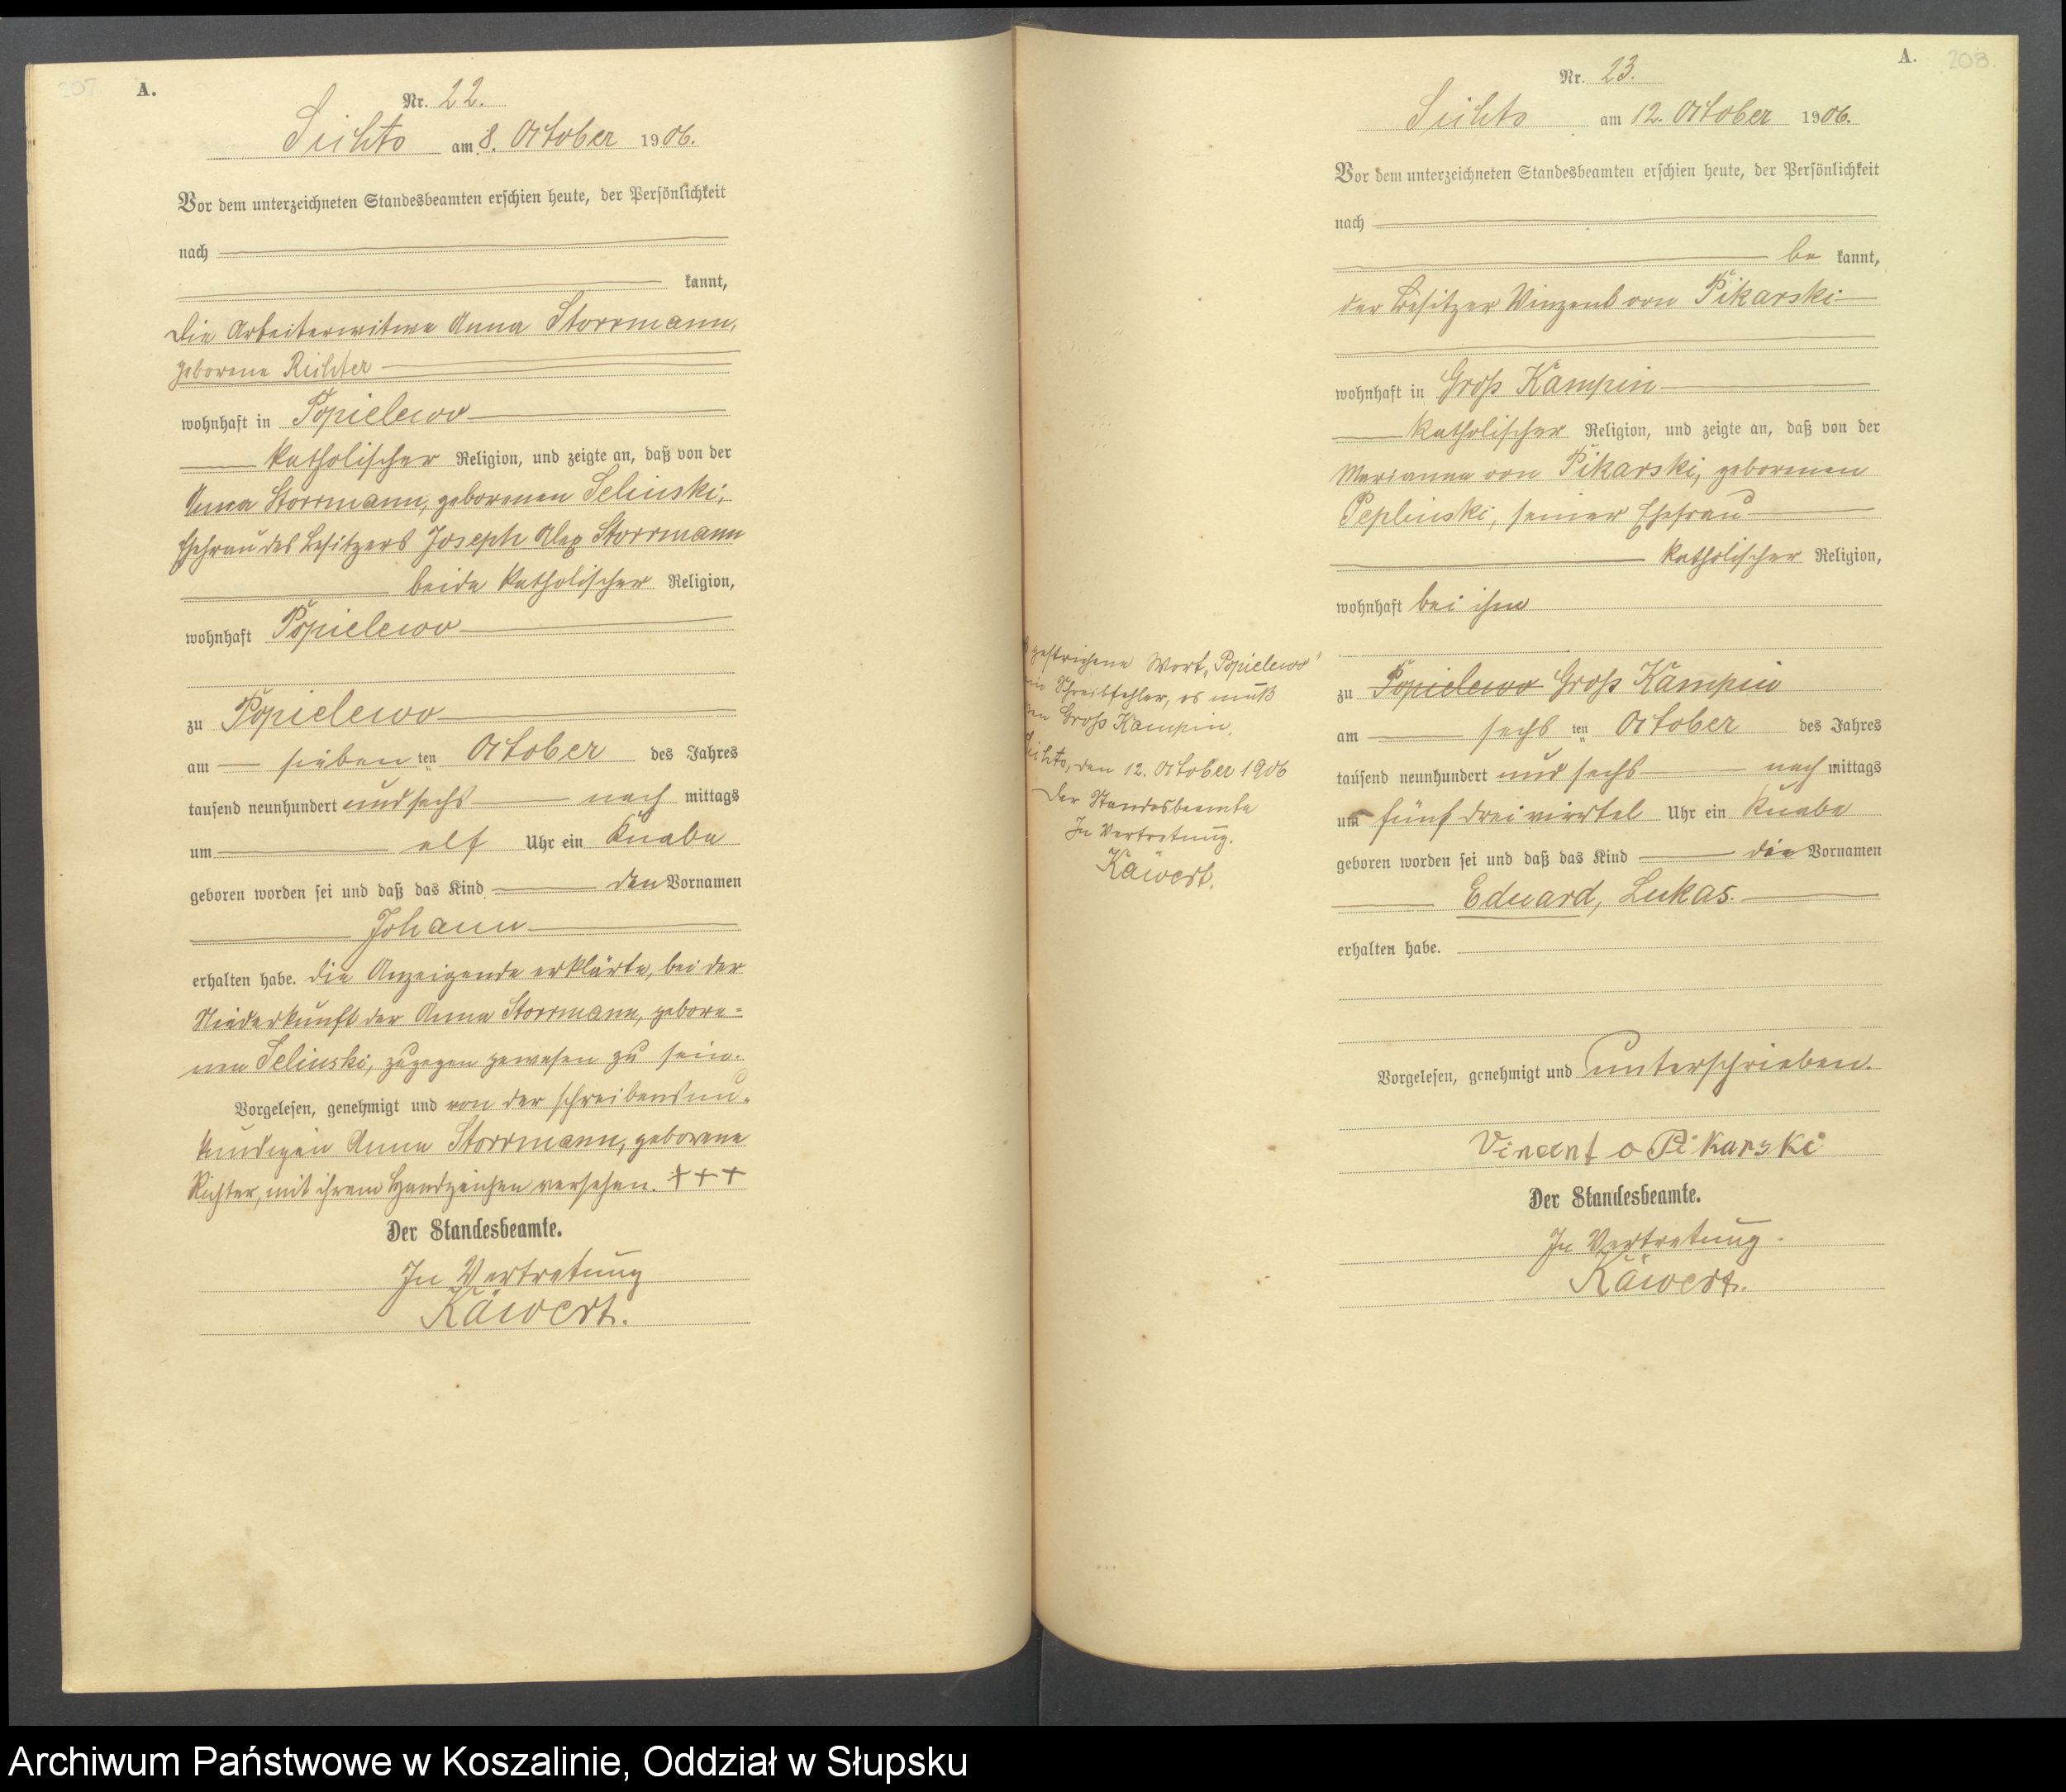 207
A.
Nr. 22.
Sichts am 8. October 1906.
Vor dem unterzeichneten Standesbeamten erschien heute, der Persönlichkeit
nach
kannt,
die Arbeiterwitwe Anna Storrmann,
geborene Richter
wohnhaft in Popielewo
katholischer Religion, und zeigte an, daß von der
Anna Storrmann, geborenen Selinski,
Ehefrau des Besitzers Joseph Alex Storrmann
beide katholischer Religion,
wohnhaft Popielewo
zu Popielewo
am sieben ten October des Jahres
tausend neunhundert und sechs nach mittags
um elf Uhr ein Knabe
geboren worden sei und daß das Kind den Vornamen
Johann
erhalten habe. Die Anzeigende erklärte, bei der
Niederkunft der Anna Storrmann, gebore-
nen Selinski, zugegen gewesen zu sein.
Vorgelesen, genehmigt und von der schreibensun-
kundigen Anna Storrmann, geborene
Richter, mit ihrem Handzeichen versehen. +++
Der Standesbeamte.
In Vertretung
Käwert.
A. 208
Nr. 23.
Sichts am 12. October 1906.
Vor dem unterzeichneten Standesbeamten erschien heute, der Persönlichkeit
nach
be kannt,
der Besitzer Vinzent von Pikarski
wohnhaft in Groß Kampin
katholischer Religion, und zeigte an, daß von der
Marianna von Pikarski, geborenen
Peplinski, seiner Ehefrau
katholischer Religion,
wohnhaft bei ihm
zu Popielewo Groß Kampin
am sechs ten October des Jahres
tausend neunhundert und sechs nach mittags
um fünf dreiviertel Uhr ein Knabe
geboren worden sei und daß das Kind die Vornamen
Eduard, Lukas.
erhalten habe.
Vorgelesen, genehmigt und unterschrieben.
Vincent o Pikarski
Der Standesbeamte.
In Vertretung.
Käwert.
gestrichene Wort „Popielewo"
ein Schreibfehler, es muß
Groß Kampin.
den 12. October 1906
Der Standesbeamte
In Vertretung.
Käwert.
Archiwum Państwowe w Koszalinie, Oddział w Słupsku